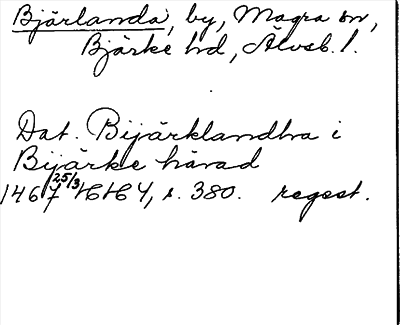 Bjärlanda, by, Magra sn,
Bjärke hd, Älvsb. l.
Dat. Bijärklandha i
Bijärke härad
1467 25/3 HH 4, s. 380. regest.